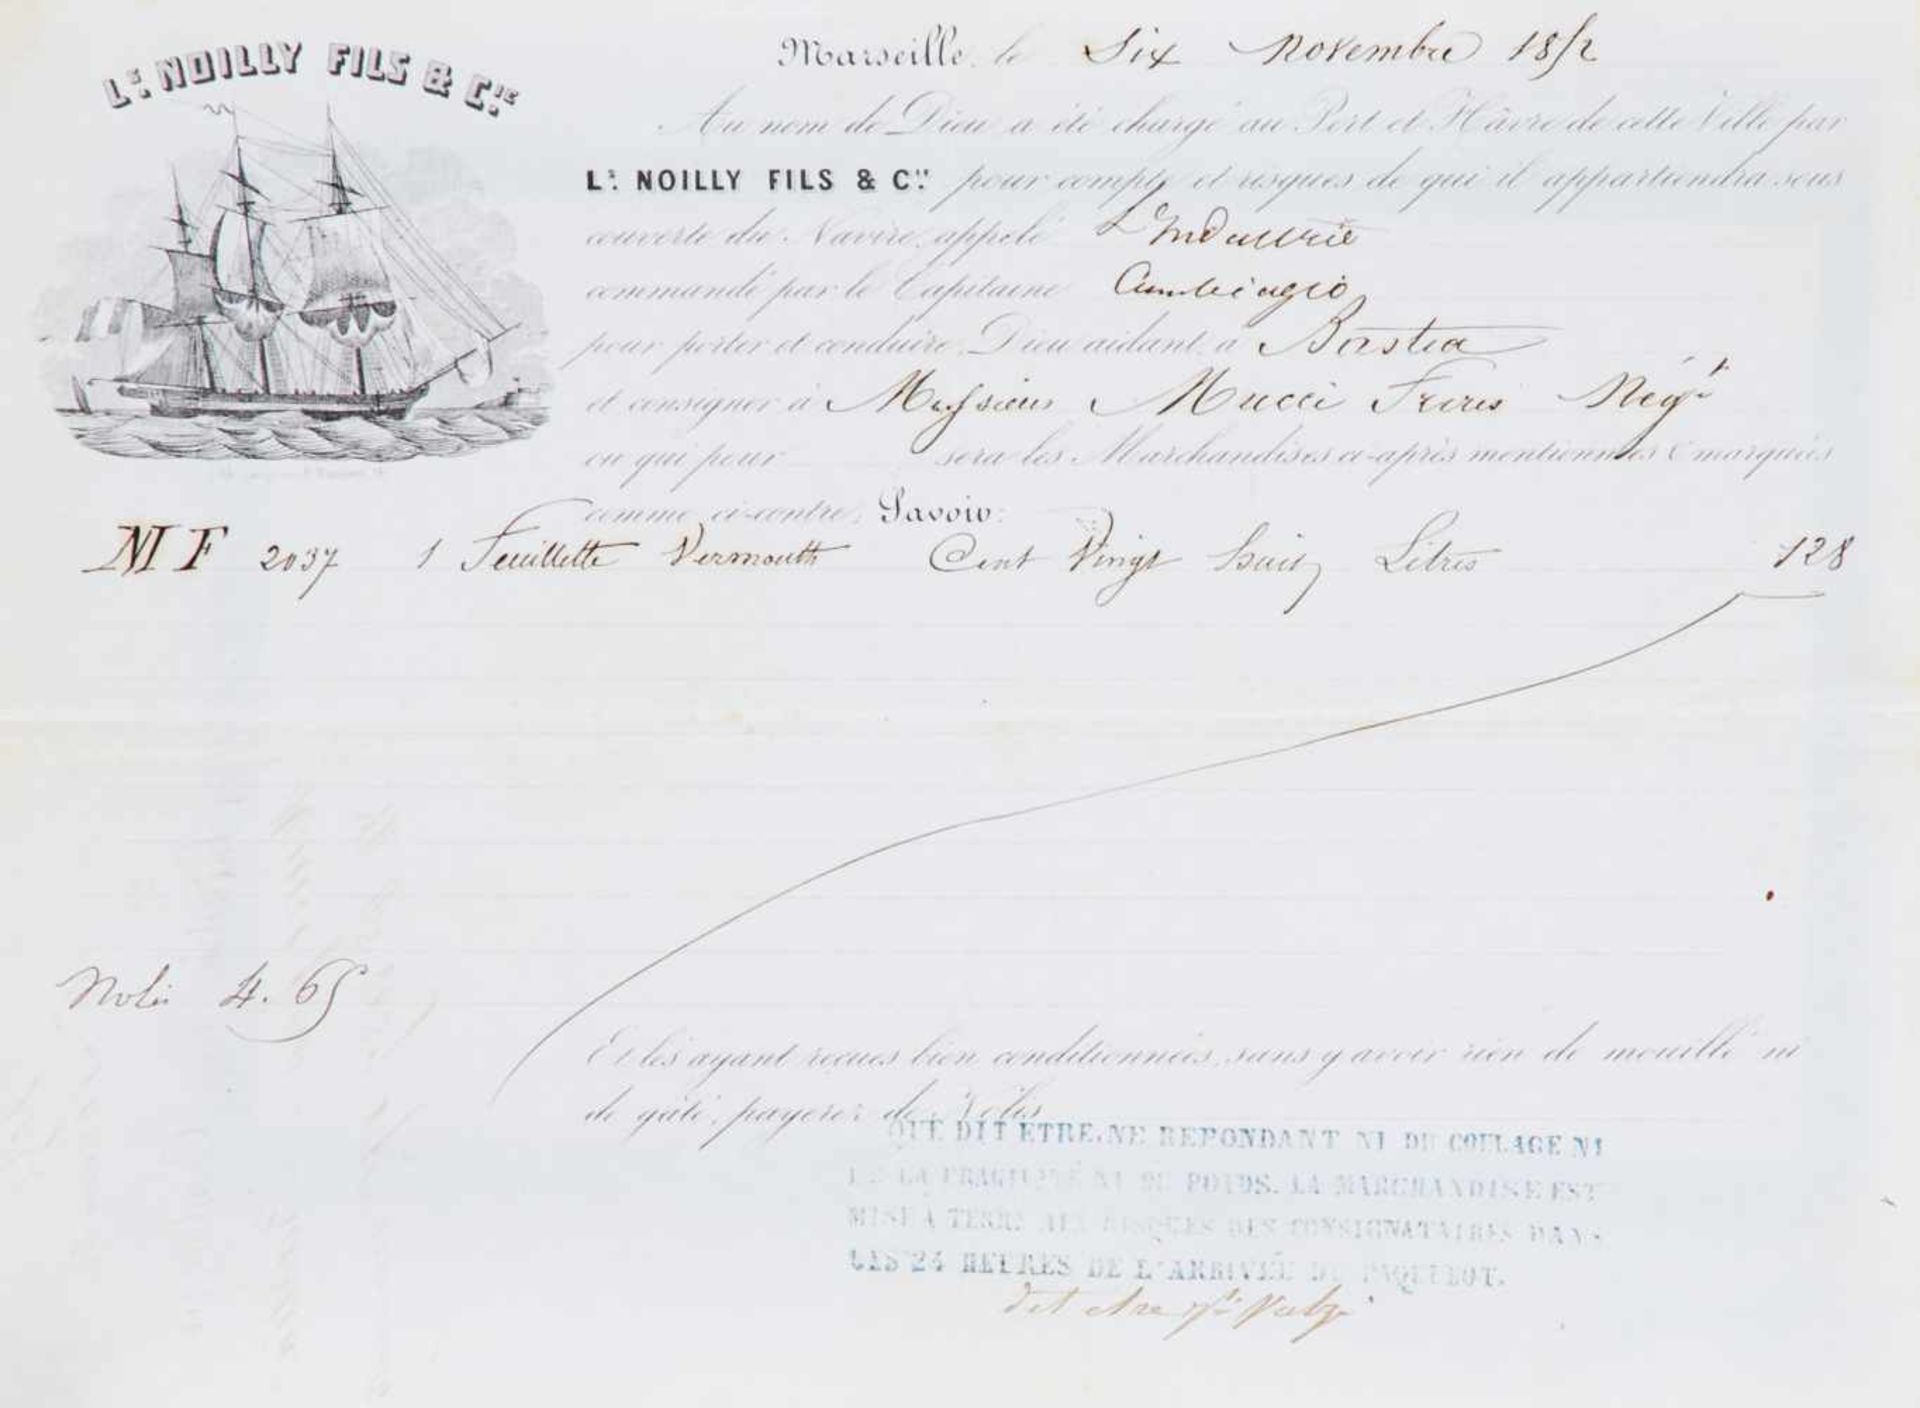 Ls. NOILLY FILS & Cie.
Marseille, le Six Novembre 1852
Au nom de Dieu a été chargé au Port et Hâvre de cette Ville par
Ls. NOILLY FILS & Cie. pour compte et risques de qui il appartiendra sous
couverte du Navire, appelé L'Industrie
commandé par le Capitaine Cambiagio
pour porter et conduire, Dieu aidant, à Bastia
et consigner à Messieurs Mucci Freres Négts
ou qui pour sera les Marchandises ci-après mentionnées & marquées
comme ci-contre, Savoir:
MF 2037 1 Feuillette Vermouth Cent Vingt huit Litres 128
Nolis 4.65
Et les ayant reçues bien conditionnées, sans y avoir rien de mouillé ni
de gâté, payerez de Nolis
QUE DIT ETRE, NE REPONDANT NI DU COULAGE NI
DE LA FRAGILITÉ NI DU POIDS. LA MARCHANDISE EST
MISE A TERRE AUX RISQUES DES CONSIGNATAIRES DANS
LES 24 HEURES DE L'ARRIVÉE DU PAQUEBOT.
dit etre